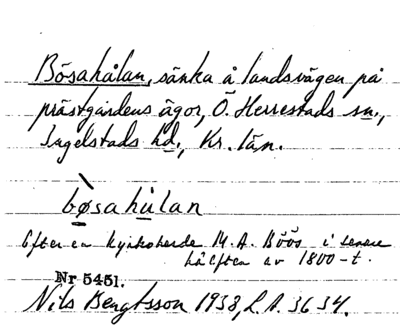 Bösahålan, sänka å landsvägen på
prästgårdens ägor, Ö. Herrestads sn.,
Ingelstads hd., Kr. län.
bø̀sahu̇lan
Efter en kyrkoherde M. A. Böös i senare
hälften av 1800-t.
Nr 5451.
Nils Bengtsson 1938, L.A. 3634.